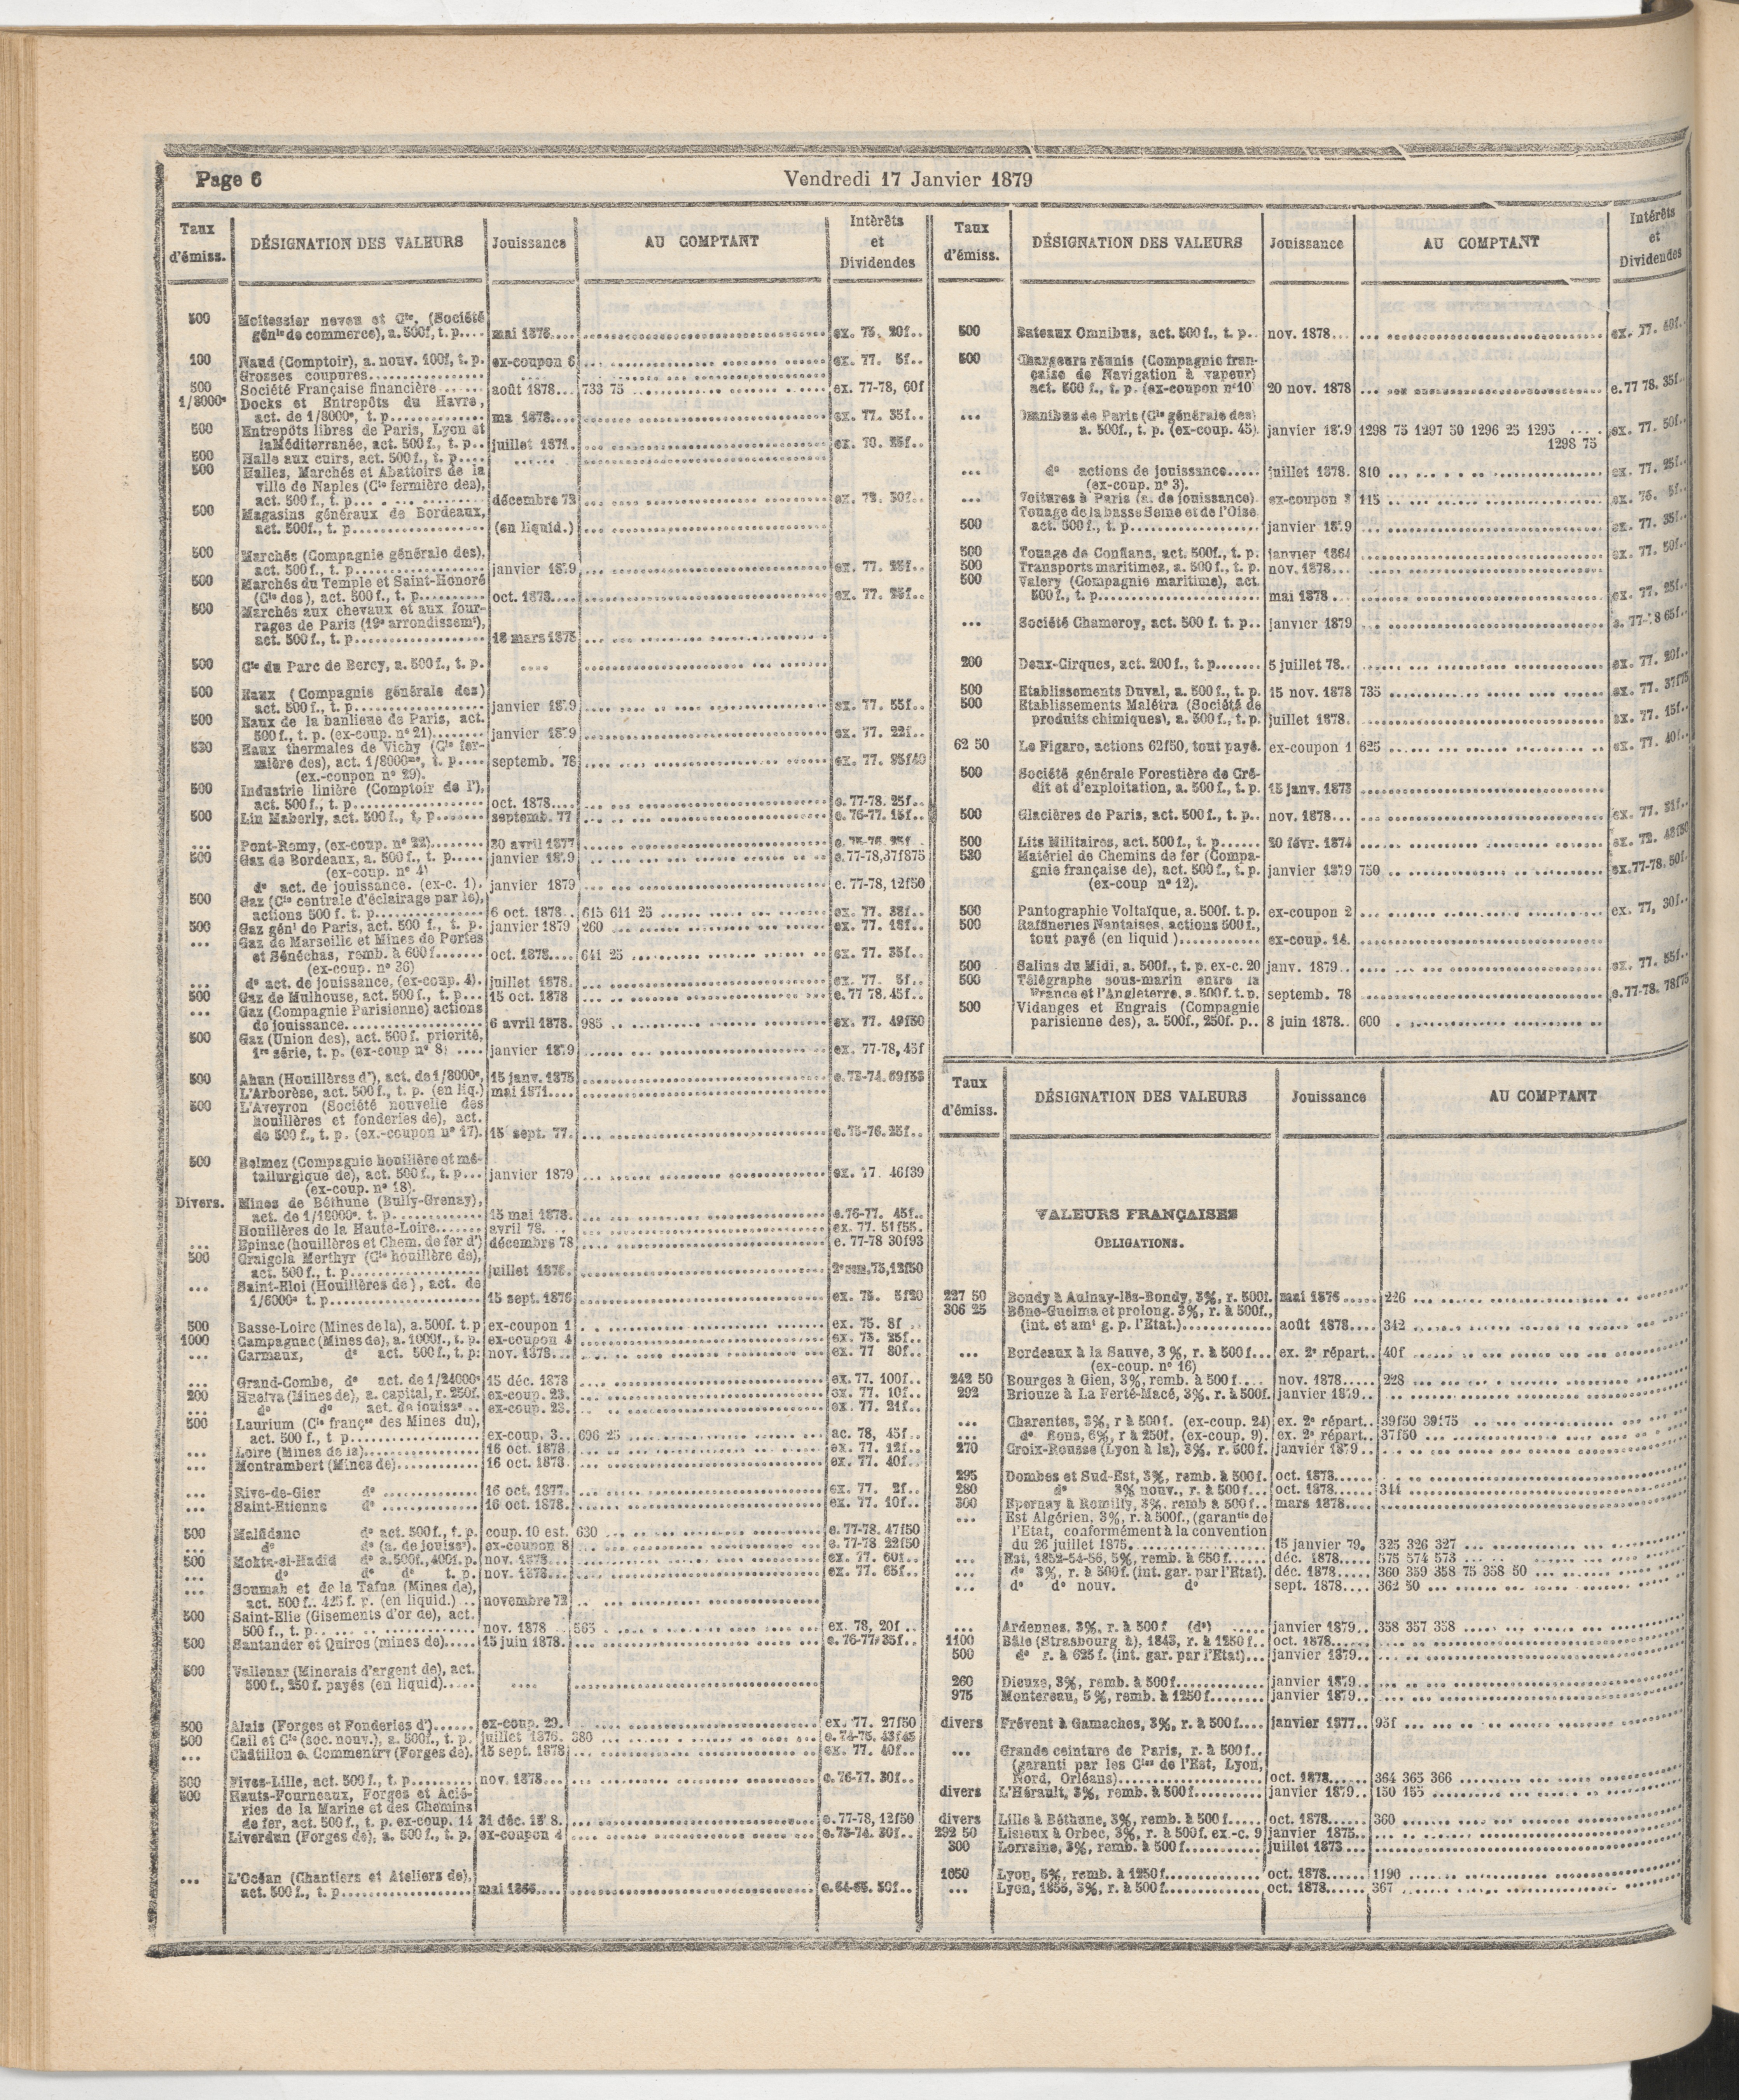 Page 6
Vendredi 17 Janvier 1879
Taux d'émiss.
DÉSIGNATION DES VALEURS
Jouissance
AU COMPTANT
Intérêts et Dividendes
500 Moitessier neveu et Cie, (Société
génle de commerce), a. 500f, t. p.... mai 1876.... ex. 75. 20f..
100 Naud (Comptoir), a. nouv. 100f, t. p. ex-coupon 6 ex. 77. 5f..
Grosses coupures
500 Société Française financière août 1878... 733 75 ex. 77-78, 60f
1/8000e Docks et Entrepôts du Havre,
act. de 1/8000e, t. p. 1878.... ex. 77. 35f..
500 Entrepôts libres de Paris, Lyon et
la Méditerranée, act. 500 f., t. p.. juillet 1871.
500 Halle aux cuirs, act. 500 f., t. p....
500 Halles, Marchés et Abattoirs de la
ville de Naples (Cie fermière des),
act. 500 f., t. p... décembre 73
500 Magasins généraux de Bordeaux,
act. 500f., t. p. (en liquid.)
500 Marchés (Compagnie générale des),
act. 500 f., t. p. janvier 1879 ex. 77. 25f..
500 Marchés du Temple et Saint-Honoré
(Cie des), act. 500 f., t. p. oct. 1878.... ex. 77. 25f..
500 Marchés aux chevaux et aux four-
rages de Paris (19e arrondissemt),
act. 500 f., t. p. 18 mars 1875
500 Cie du Parc de Bercy, a. 500 f., t. p.
500 Eaux (Compagnie générale des)
act. 500 f., t. p. janvier 1879 ex. 77. 55f..
500 Eaux de la banlieue de Paris, act.
500 f., t. p. (ex-coup. n° 21) janvier 1879 ex. 77. 22f..
530 Eaux thermales de Vichy (Cie fer-
mière des), act. 1/8000me, t. p.... septemb. 78
(ex.-coupon n° 29).
500 Industrie linière (Comptoir de l'),
act. 500 f., t. p. oct. 1878.... e. 77-78. 25f..
500 Lin Maberly, act. 500 f., t. p. septemb. 77 e. 76-77. 15f..
... Pont-Remy, (ex-coup. n° 22) 30 avril 1877 e. 75-76. 25f..
500 Gaz de Bordeaux, a. 500 f., t. p..... janvier 1879 e. 77-78, 37f875
(ex-coup. n° 4)
d° act. de jouissance. (ex-c. 1). janvier 1879 e. 77-78, 12f50
500 Gaz (Cie centrale d'éclairage par le),
actions 500 f. t. p. 6 oct. 1878.. 615 611 25
500 Gaz génl de Paris, act. 500 f., t. p. janvier 1879 260
... Gaz de Marseille et Mines de Portes
et Sénéchas, remb. à 600 f. oct. 1878.... 641 25 ex. 77. 35f..
(ex-coup. n° 36)
... d° act. de jouissance, (ex-coup. 4). juillet 1878. ex. 77. 5f..
500 Gaz de Mulhouse, act. 500 f., t. p... 15 oct. 1878 e. 77 78. 45f..
... Gaz (Compagnie Parisienne) actions
de jouissance 6 avril 1878. 985 ex. 77. 49f50
500 Gaz (Union des), act. 500 f. priorité,
1re série, t. p. (ex-coup n° 8) .... janvier 1879 ex. 77-78, 45f
500 Ahun (Houillères d'), act. de 1/8000e, 15 janv. 1875
L'Arborèse, act. 500 f., t. p. (en liq.) mai 1871....
500 L'Aveyron (Société nouvelle des
houillères et fonderies de), act.
de 500 f., t. p. (ex.-coupon n° 17). 15 sept. 77. e. 75-76. 25f..
500 Belmez (Compagnie houillère et mé-
tallurgique de), act. 500 f., t. p... janvier 1879 ex. 77. 46f39
(ex-coup. n° 18).
Divers. Mines de Béthune (Bully-Grenay),
act. de 1/18000e. t. p. 15 mai 1878. e. 76-77. 45f..
Houillères de la Haute-Loire avril 78. ex. 77. 51f55.
... Epinac (houillères et Chem. de fer d') décembre 78 e. 77-78 30f93
500 Graigola Merthyr (Cie houillère de),
act. 500 f., t. p. juillet 1876. 2e sem. 75, 12f50
... Saint-Eloi (Houillères de), act. de
1/6000e t. p. 15 sept. 1876 ex. 75. 5f20
500 Basse-Loire (Mines de la), a. 500f. t. p ex-coupon 1 ex. 75. 8f
1000 Campagnac (Mines de), a. 1000f., t. p. ex-coupon 4 ex. 75. 25f..
... Carmaux, d° act. 500 f., t. p: nov. 1878... ex. 77 80f..
... Grand-Combe, d° act. de 1/24000e 15 déc. 1878 ex. 77. 100f..
200 Huelva (Mines de), a. capital, r. 250f. ex-coup. 23. ex. 77. 10f..
... d° d° act. de jouisse... ex-coup. 23. ex. 77. 21f..
500 Laurium (Cie françse des Mines du),
act. 500 f., t p. ex-coup. 3.. 606 25 ac. 78, 45f..
... Loire (Mines de la) 16 oct. 1878. ex. 77. 12f..
... Montrambert (Mines de) 16 oct. 1878. ex. 77. 40f..
... Rive-de-Gier d° 16 oct. 1877. ex. 77. 2f..
... Saint-Etienne d° 16 oct. 1878. ex. 77. 10f..
500 Malfidano d° act. 500 f., t. p. coup. 10 est. 630 e. 77-78. 47f50
... d° d° (a. de jouisce). ex-coupon 8 e. 77-78 22f50
500 Mokta-el-Hadid d° a. 500f., 400f. p. nov. 1878... ex. 77. 60f..
... d° d° d° t. p. nov. 1878... ex. 77. 65f..
... Soumah et de la Tafna (Mines de),
act. 500 f.. 425 f. p. (en liquid.) .. novembre 72
500 Saint-Elie (Gisements d'or de), act.
500 f., t. p. nov. 1878 565 ex. 78, 20f ..
500 Santander et Quiros (mines de) 15 juin 1878. e. 76-77. 35f..
500 Vallenar (Minerais d'argent de), act.
500 f., 250 f. payés (en liquid)
500 Alais (Forges et Fonderies d') ex-coup. 29. ex. 77. 27f50
500 Cail et Cie (soc. nouv.), a. 500f., t. p. juillet 1876. 380
... Châtillon & Commentry (Forges de). 15 sept. 1878 ex. 77. 40f..
500 Fives-Lille, act. 500 f., t. p. nov. 1878... e. 76-77. 30f..
500 Hauts-Fourneaux, Forges et Acié-
ries de la Marine et des Chemins
de fer, act. 500 f., t. p. ex-coup. 14 31 déc. e. 77-78, 12f50
Liverdun (Forges de), a. 500 f., t. p. ex-coupon 4 e. 73-74. 30f..
... L'Océan (Chantiers et Ateliers de),
act. 500 f., t. p. e. 64-65. 50f..
Taux d'émiss.
DÉSIGNATION DES VALEURS
Jouissance
AU COMPTANT
Intérêts et Dividendes
500 Bateaux Omnibus, act. 500 f., t. p.. nov. 1878... ex. 77. 40f..
500 Chargeurs réunis (Compagnie fran-
çaise de Navigation à vapeur)
act. 500 f., t. p. (ex-coupon n° 10) 20 nov. 1878 e. 77 78, 35f..
... Omnibus de Paris (Cie générale des)
a. 500f., t. p. (ex-coup. 45). janvier 1879 1298 75 1297 50 1296 25 1295 .... ex. 77. 50f..
1298 75
... d° actions de jouissance..... juillet 1878. 810 ex. 77. 25f..
(ex-coup. n° 3).
... Voitures à Paris (a. de jouissance). ex-coupon 115
Touage de la basse Seine et de l'Oise
500 act. 500 f., t. p. janvier 1879 ex. 77. 35f..
500 Touage de Conflans, act. 500f., t. p. janvier 1864 ex. 77. 50f..
500 Transports maritimes, a. 500 f., t. p. nov. 1878...
500 Valery (Compagnie maritime), act.
500 f., t. p. mai 1878 ex. 77. 25f..
... Société Chameroy, act. 500 f. t. p.. janvier 1879
200 Deux-Cirques, act. 200 f., t. p. 5 juillet 78.. ex. 77. 20f..
500 Etablissements Duval, a. 500 f., t. p. 15 nov. 1878 735 ex. 77. 37f75
500 Etablissements Malétra (Société de
produits chimiques), a. 500 f., t. p. juillet 1878. ex. 77. 15f..
62 50 Le Figaro, actions 62f50, tout payé. ex-coupon 1 625 ex. 77. 40f..
500 Société générale Forestière de Cré-
dit et d'exploitation, a. 500 f., t. p. 15 janv. 1873
500 Glacières de Paris, act. 500 f., t. p.. nov. 1878... ex. 77. 31f..
500 Lits Militaires, act. 500 f., t. p. 20 févr. 1874
530 Matériel de Chemins de fer (Compa-
gnie française de), act. 500 f., t. p. janvier 1879 750 ex. 77-78, 50f.
(ex-coup n° 12).
500 Pantographie Voltaïque, a. 500f. t. p. ex-coupon 2 ex. 77, 30f..
500 Raffineries Nantaises. actions 500 f.,
tout payé (en liquid ) ex-coup. 14.
500 Salins du Midi, a. 500f., t. p. ex-c. 20 janv. 1879.. ex. 77. 55f..
500 Télégraphe sous-marin entre la
France et l'Angleterre, a. 500f. t. p. septemb. 78 e. 77-78. 78f75
500 Vidanges et Engrais (Compagnie
parisienne des), a. 500f., 250f. p.. 8 juin 1878.. 600
Taux d'émiss.
DÉSIGNATION DES VALEURS
Jouissance
AU COMPTANT
VALEURS FRANÇAISES
OBLIGATIONS.
227 50 Bondy à Aulnay-lès-Bondy, 3%, r. 500f. mai 1876 226
306 25 Bône-Guelma et prolong. 3%, r. à 500f.,
(int. et amt g. p. l'Etat.) août 1878.... 342
... Bordeaux à la Sauve, 3 %, r. à 500 f... ex. 2e répart.. 40f
(ex-coup. n° 16)
242 50 Bourges à Gien, 3%, remb. à 500 f.... nov. 1878..... 228
292 Briouze à La Ferté-Macé, 3%. r. à 500f. janvier 1879..
... Charentes, 3%, r à 500 f. (ex-coup. 24) ex. 2e répart.. 39f50 39f75
... d° Bons, 6%, r à 250f. (ex-coup. 9). ex. 2e répart.. 37f50
270 Croix-Rousse (Lyon à la), 3%, r. 500 f. janvier 1879..
295 Dombes et Sud-Est, 3%, remb. à 500 f. oct. 1878......
280 d° 3% nouv., r. à 500 f... oct. 1878...... 344
300 Epernay à Romilly, 3%. remb à 500 f.. mars 1878....
... Est Algérien, 3%, r. à 500f., (garantie de
l'Etat, conformément à la convention
du 26 juillet 1875. 15 janvier 79. 325 326 327
... Est, 1852-54-56, 5%, remb. à 650 f. déc. 1878..... 575 574 573
... d° 3%, r. à 500 f. (int. gar. par l'Etat). déc. 1878..... 360 359 358 75 358 50
... d° d° nouv. d° sept. 1878.... 362 50
... Ardennes, 3%, r. à 500 f (d°) janvier 1879.. 358 357 358
1100 Bâle (Strasbourg à), 1843, r. à 1250 f.. oct. 1878......
500 d° r. à 625 f. (int. gar. par l'Etat)... janvier 1879..
260 Dieuze, 3%, remb. à 500 f. janvier 1879..
975 Montereau, 5 %, remb. à 1250 f. janvier 1879..
divers Frévent à Gamaches, 3%, r. à 500 f.... janvier 1877.. 95f
... Grande ceinture de Paris, r. à 500 f..
(garanti par les Cies de l'Est, Lyon,
Nord, Orléans) oct. 1878...... 364 365 366
divers L'Hérault, 3%, remb. à 500 f. janvier 1879.. 150 155
divers Lille à Béthune, 3%, remb. à 500 f. oct. 1878...... 360
292 50 Lisieux à Orbec, 3%, r. à 500f. ex.-c. 9 janvier 1875..
300 Lorraine, 3%, remb. à 500 f. juillet 1873...
1050 Lyon, 5%, remb. à 1250 f. oct. 1878...... 1190
... Lyon, 1855, 3%, r. à 500 f. oct. 1878...... 367